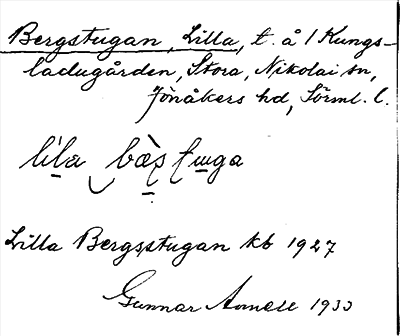 Bergstugan, Lilla, t. å 1 Kungs-
ladugården, Stora, Nikolai sn,
Jönåkers hd, Sörml. l.
Lilla Bergsstugan kb 1927
Gunnar Arnell 1933